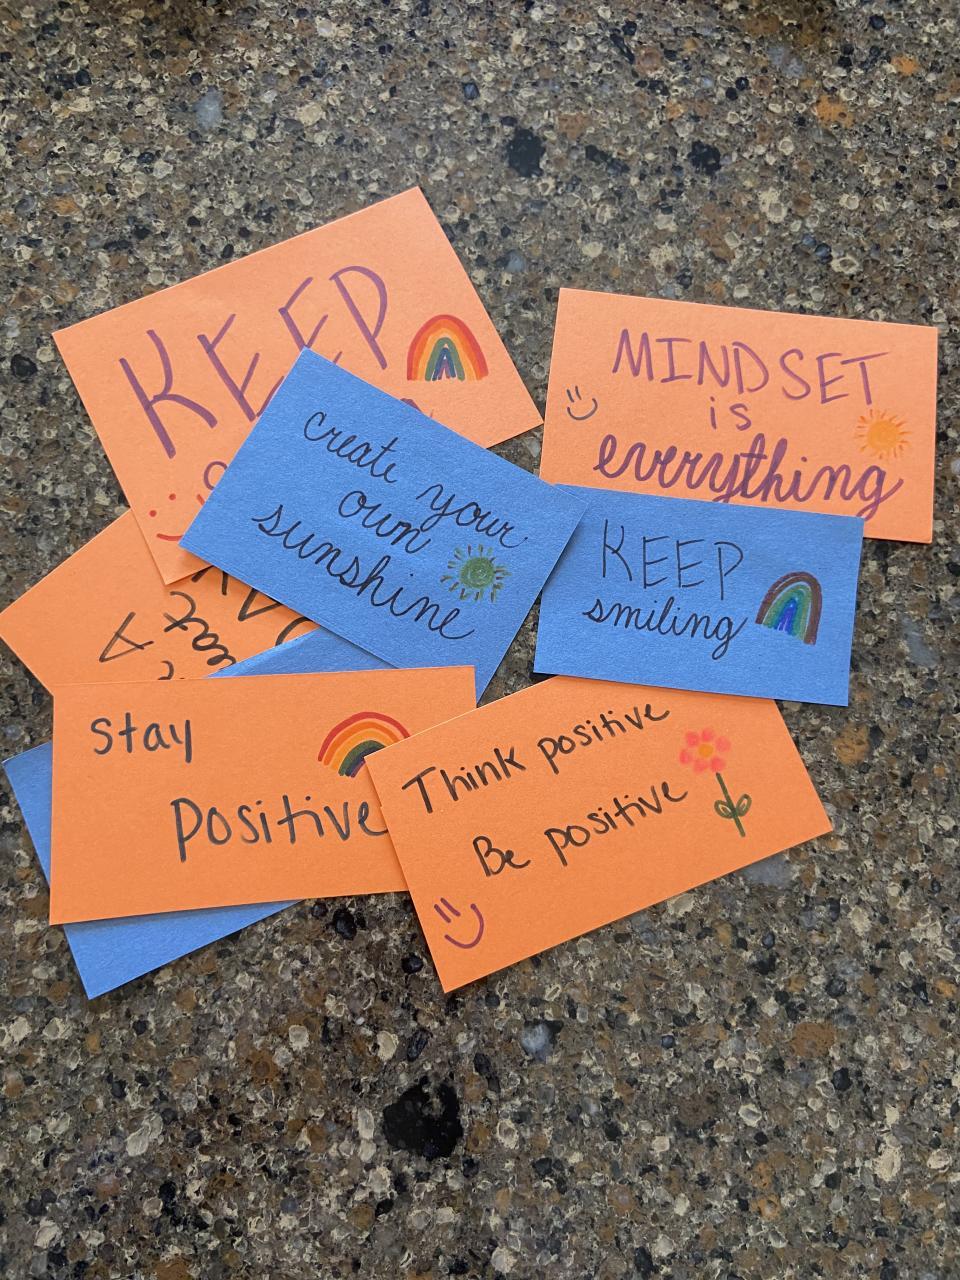 KEEP
MINDSET
is
everything
create your
own
sunshine
KEEP
smiling
A
Stay
Positive
Think positive
Be positive